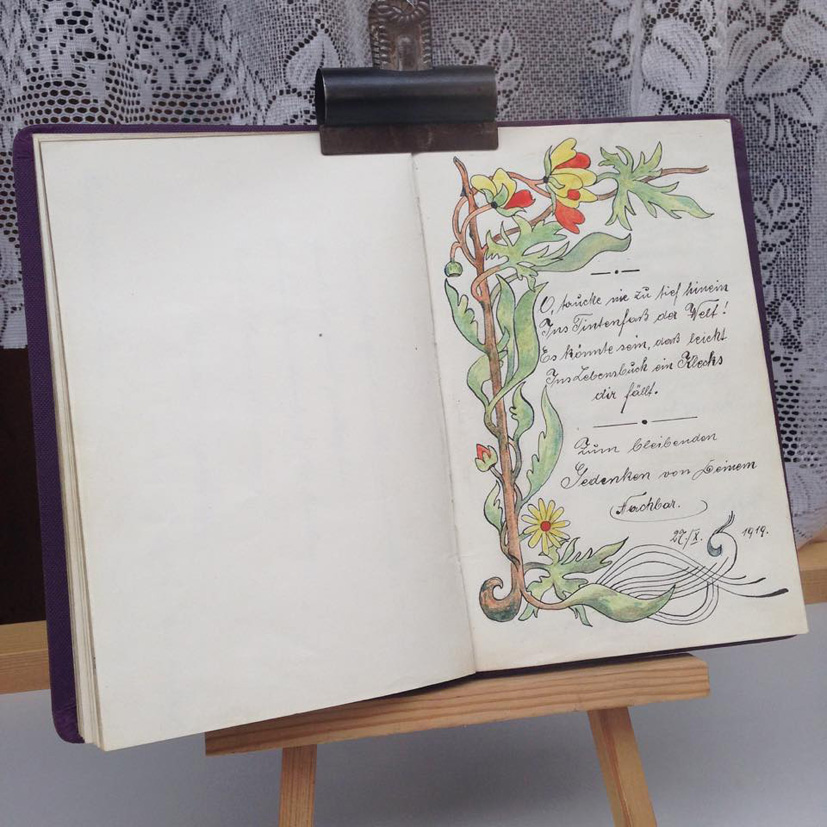 O, tauche nie zu tief hinein
Ins Tintenfaß der Welt!
Es könnte sein, daß leicht
Ins Lebensbuch ein Klecks
dir fällt.
Zum bleibenden
Gedenken von Deinem
Nachbar.
27/X. 1919.